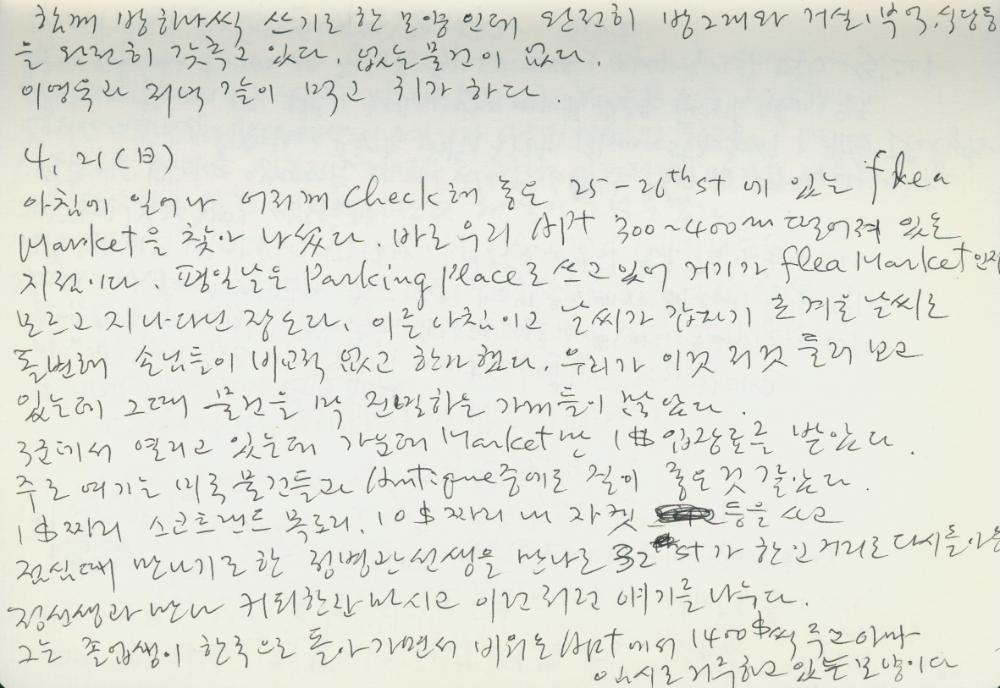 함께 방하나씩 쓰기로 한 모양인데 완전히 방그래와 거실, 부엌, 식당등
을 완전히 갖추고 있다. 없는 물건이 없다.
이영욱과 저녁 같이 먹고 귀가 하다.
4, 21 (日)
아침에 일어나 어저께 Check해 놓은 25-26th st 에 있는 flea
Market을 찾아 나섰다. 바로 우리 APt 300~400m 떨어져 있는
지점이다. 평일날은 Parking Place로 쓰고 있어 거기가 flea Market인지
모르고 지나다닌 장소라. 이른 아침이고 날씨가 갑자기 초겨울 날씨로
돌변해 손님들이 비교적 없고 한가했다. 우리가 이것 저것 둘러 보고
있는데 그때 물건을 막 진열하는 가게들이 많았다.
3군데서 열리고 있는데 가운데 Market만 1$ 입장료를 받았다.
주로 여기는 미국 물건들과 Antique중에도 질이 좋은것 같았다.
1$ 짜리 스코트랜드 목도리, 10$ 짜리 내 자켓 등을 사고
점심때 만나기로 한 정병관선생을 만나로 32 st 가 한인거리로 다시 돌아옴
정선생과 만나 커피한잔 마시고 이런저런 얘기를 나누다.
그는 졸업생이 한국으로 돌아가면서 비워논 Apt에서 1400$씩 주고 아마
임시로 거주하고 있는 모양이다